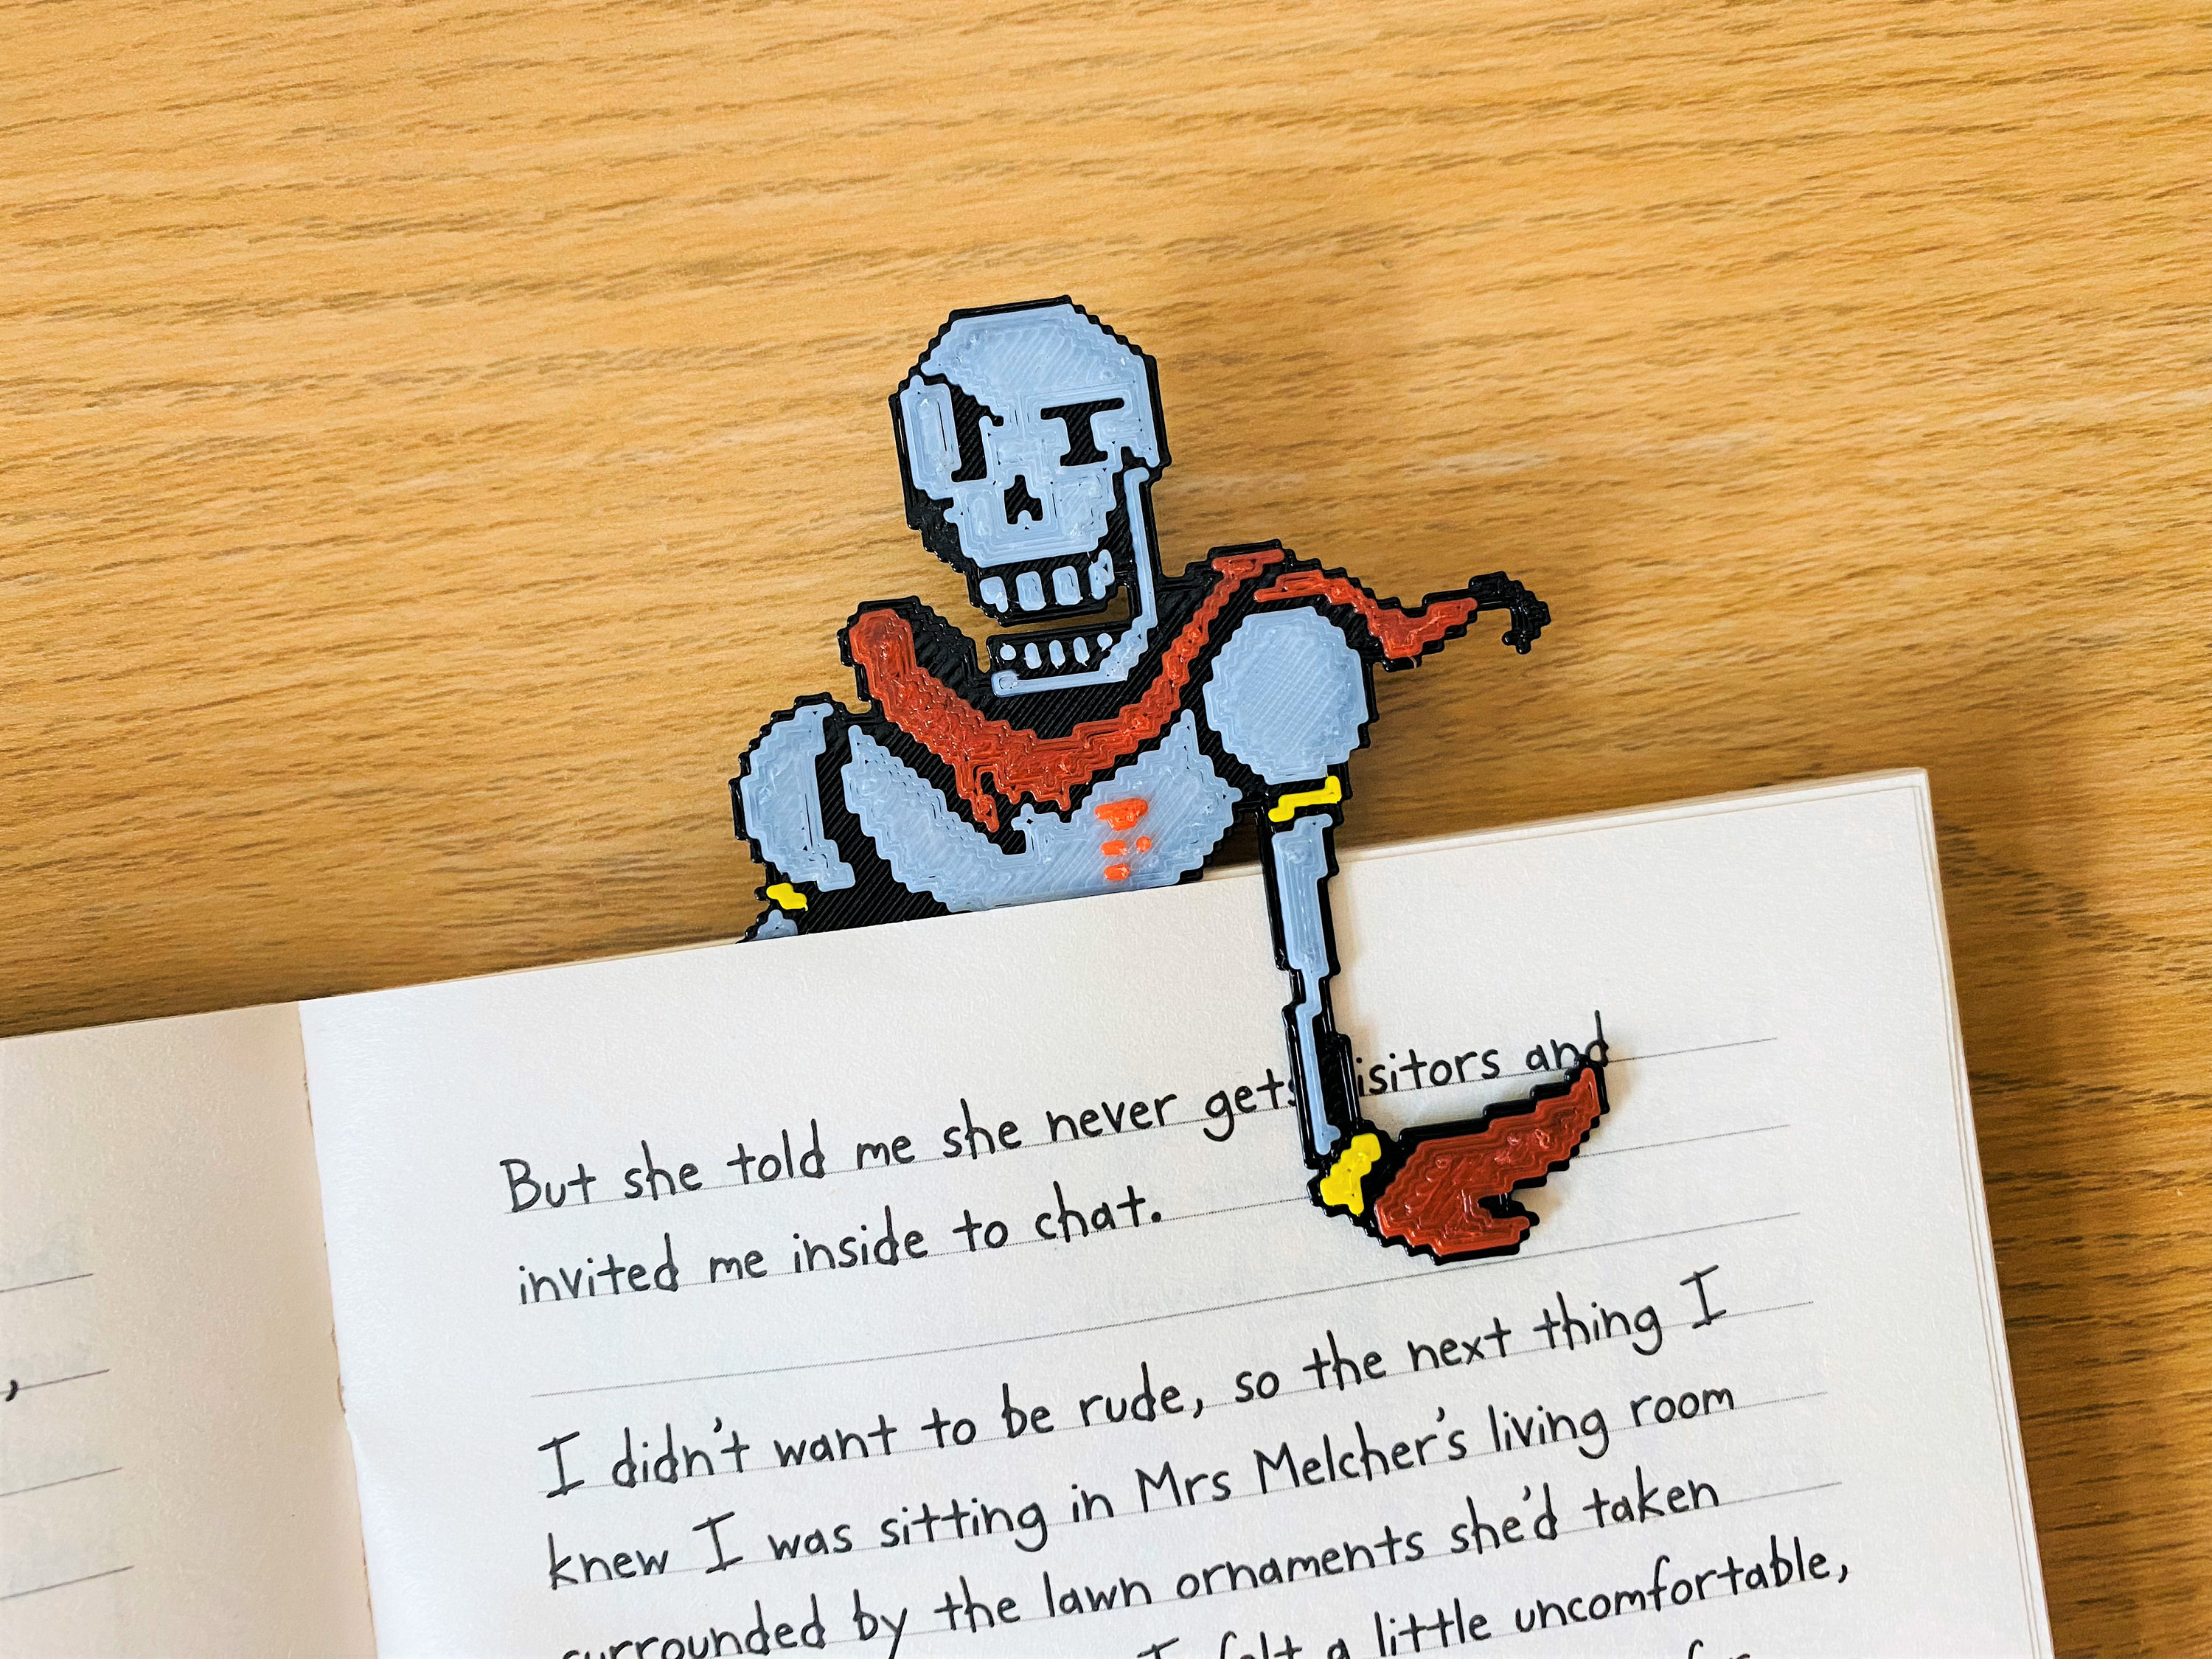 But she told me she never gets isitors and
invited me inside to chat.
I didn't want to be rude, so the next thing I
knew I was sitting in Mrs Melcher's living room
surrounded by the lawn ornaments she'd taken
I felt a little uncomfortable,
,